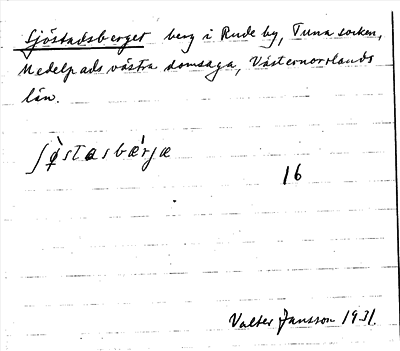 Sjöstadsberget berg i Rude by, Tuna socken,
Medelpads västra domsaga, Västernorrlands
län.
ʃø̀stasbær̀jæ
16
Valter Jansson 1931.